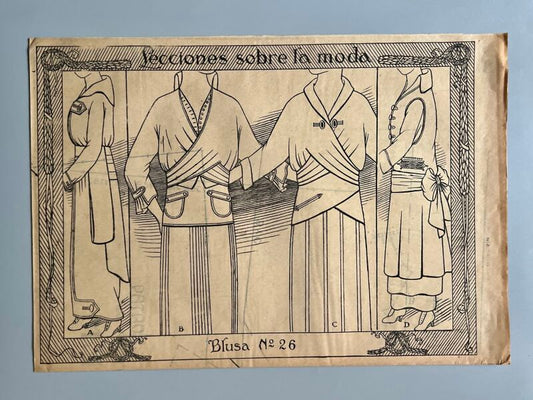 Lecciones sobre la moda
A
B
C
D
Blusa Nº 26